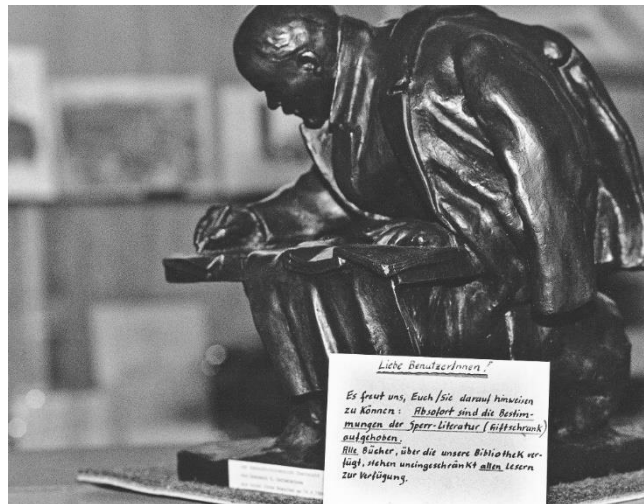 Liebe BenutzerInnen!
Es freut uns, Euch/Sie darauf hinweisen
zu können: Absofort sind die Bestim-
mungen der Sperr-Literatur (Giftschrank)
aufgehoben.
Alle Bücher, über die unsere Bibliothek ver-
fügt, stehen uneingeschränkt allen Lesern
zur Verfügung.